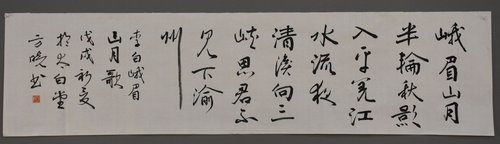 峨眉山月
半輪秋影
入平羌江
水流夜
清溪向三
峽思君不
見下渝
州
李白峨眉
山月歌
戊戌初夏
於太白堂